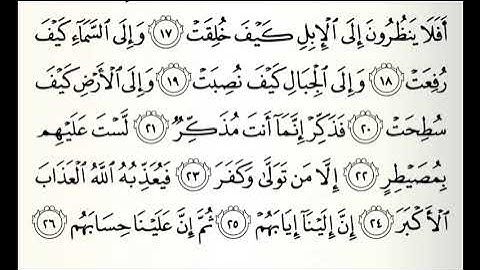 أَفَلَا يَنظُرُونَ إِلَى الْإِبِلِ كَيْفَ خُلِقَتْ ١٧ وَإِلَى السَّمَاءِ كَيْفَ
رُفِعَتْ ١٨ وَإِلَى الْجِبَالِ كَيْفَ نُصِبَتْ ١٩ وَإِلَى الْأَرْضِ كَيْفَ
سُطِحَتْ ٢٠ فَذَكِّرْ إِنَّمَا أَنتَ مُذَكِّرٌ ٢١ لَّسْتَ عَلَيْهِم
بِمُصَيْطِرٍ ٢٢ إِلَّا مَن تَوَلَّىٰ وَكَفَرَ ٢٣ فَيُعَذِّبُهُ اللَّهُ الْعَذَابَ
الْأَكْبَرَ ٢٤ إِنَّ إِلَيْنَا إِيَابَهُمْ ٢٥ ثُمَّ إِنَّ عَلَيْنَا حِسَابَهُم ٢٦